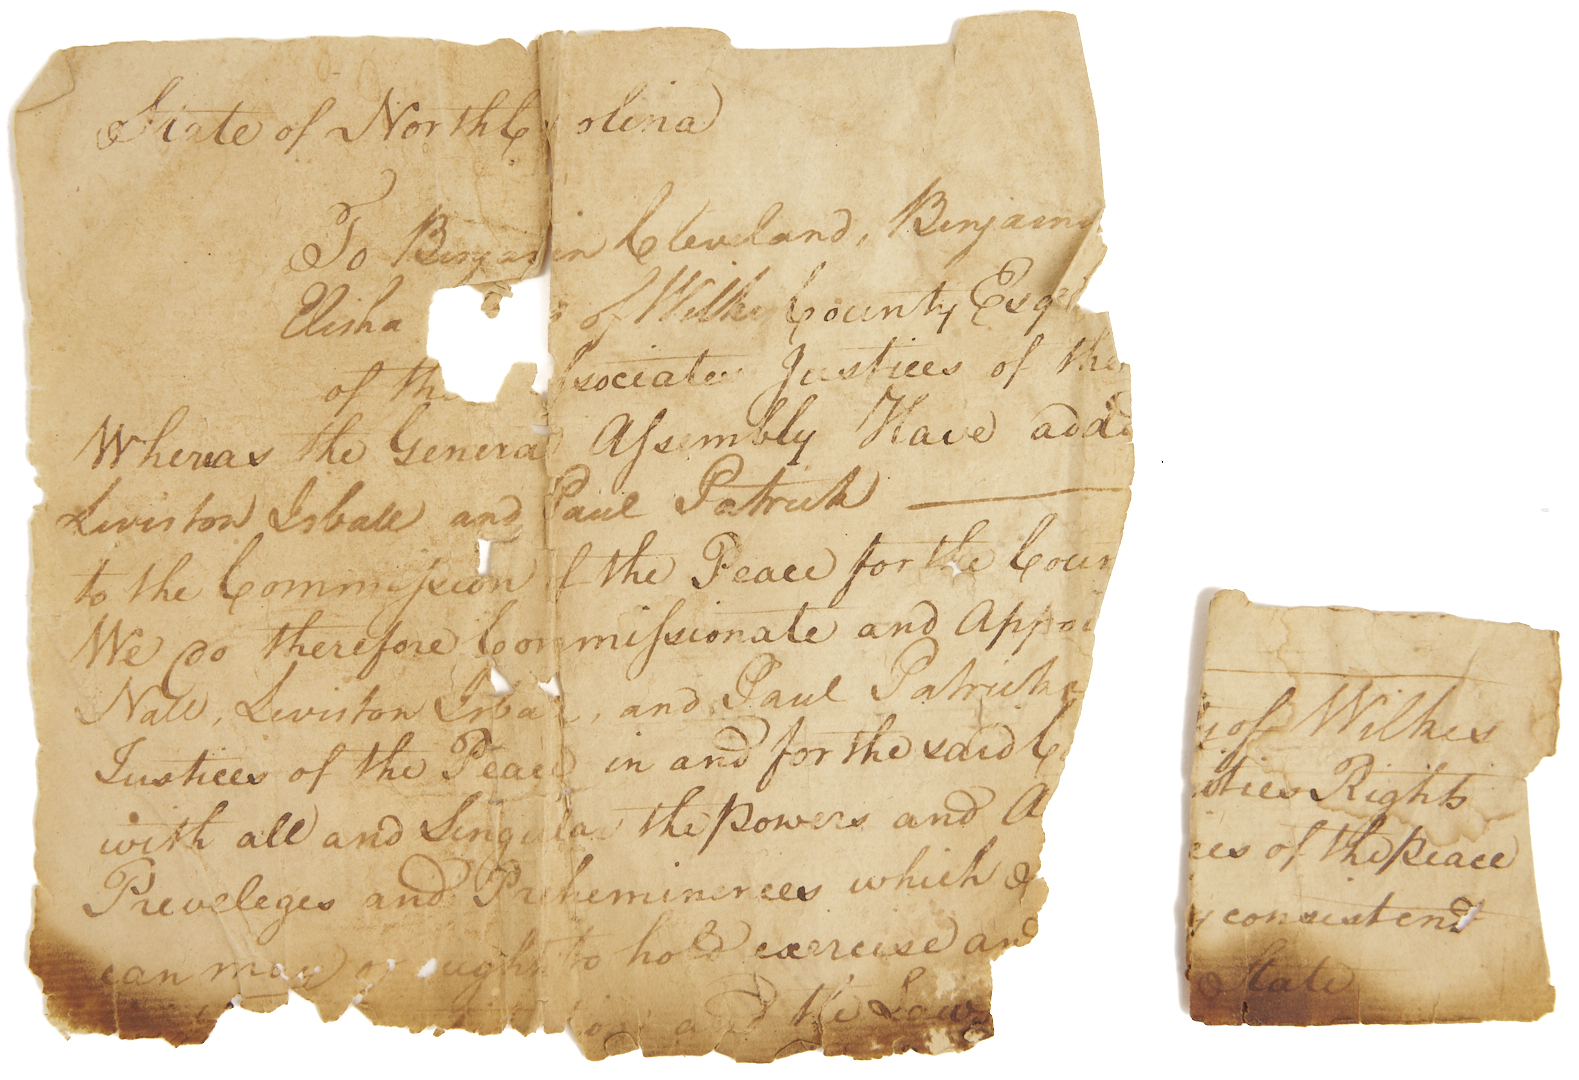 State of North C olina
To Benjamin Cleveland, Benjamin
Elisha of Wilkes County Esqr
of the Associates Justices of the
Whereas the General Assembly Have add
Leviston Isball and Paul Patrick
to the Commission of the Peace for the Coun ty of Wilkes
We do therefore Commissionate and Appoi
Nall, Leviston Isball, and Paul Patrick
Justices of the Peace in and for the said Co
with all and Singular the powers and A ities Rights
Preveleges and Preheminences which ces of the peace
can may or ought to hold exercise and y consistend
and the Laws State